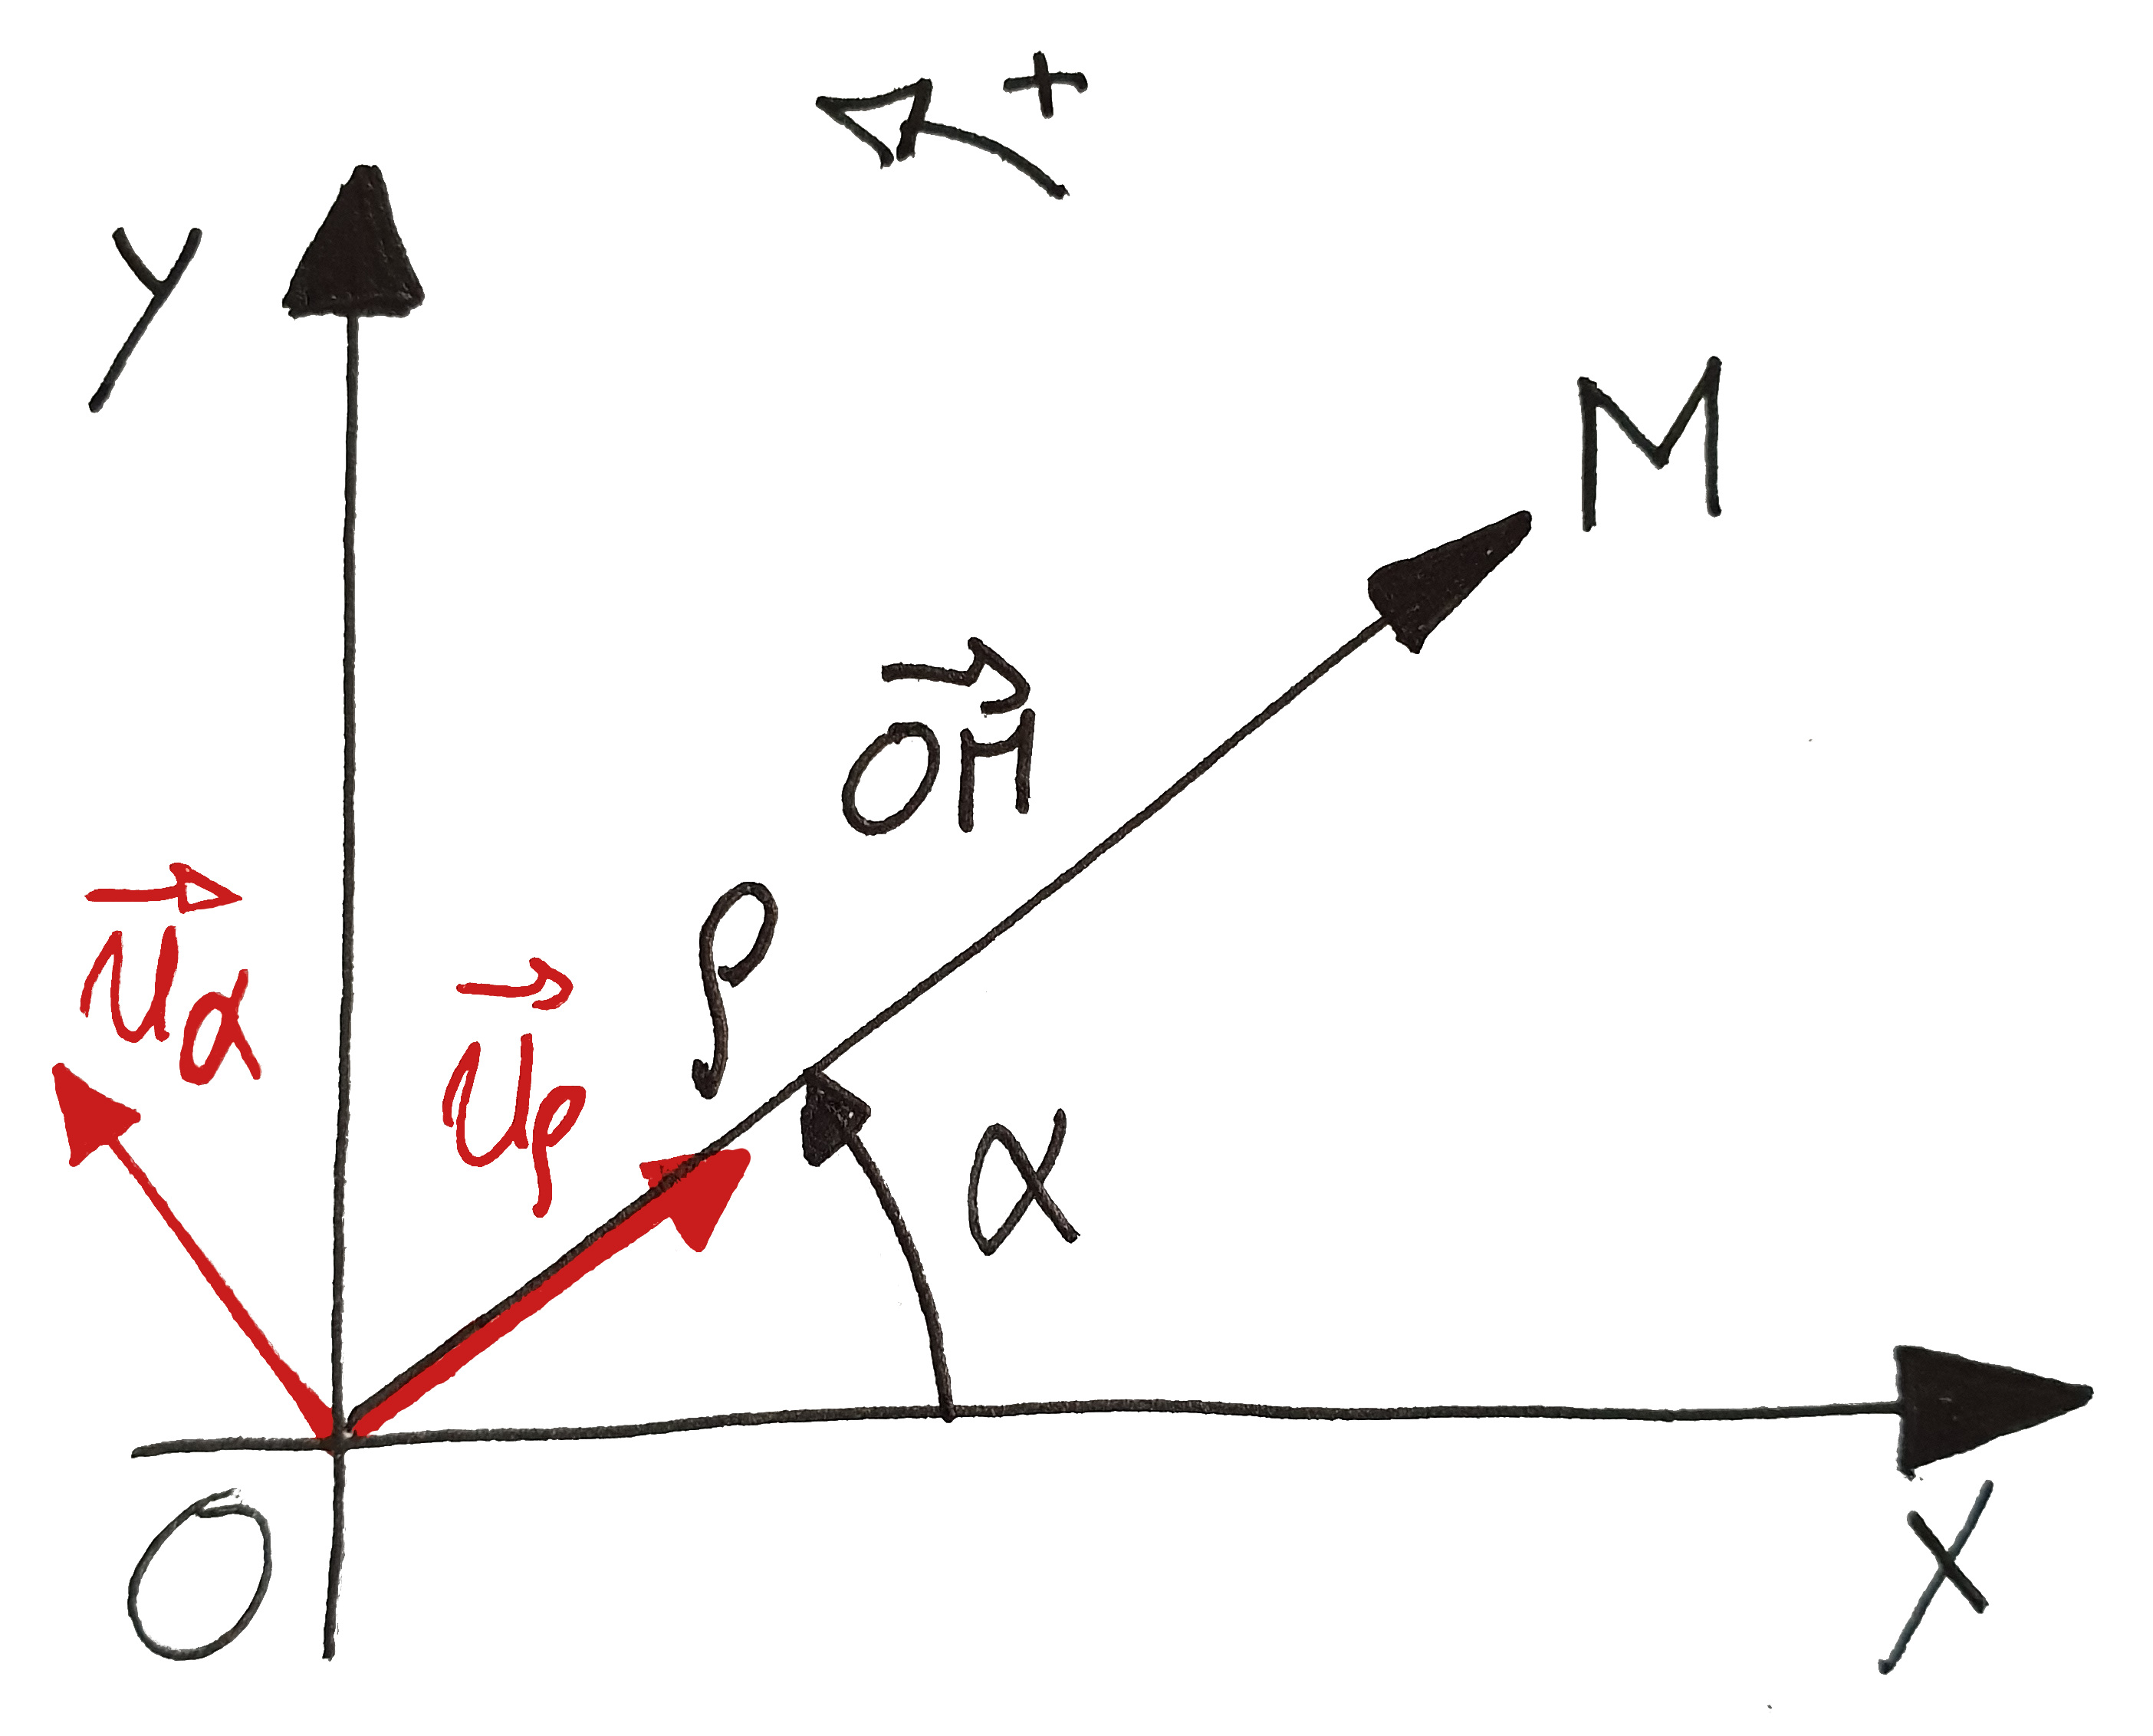 +
y
M
OM
ρ
uα
uρ
α
O
x